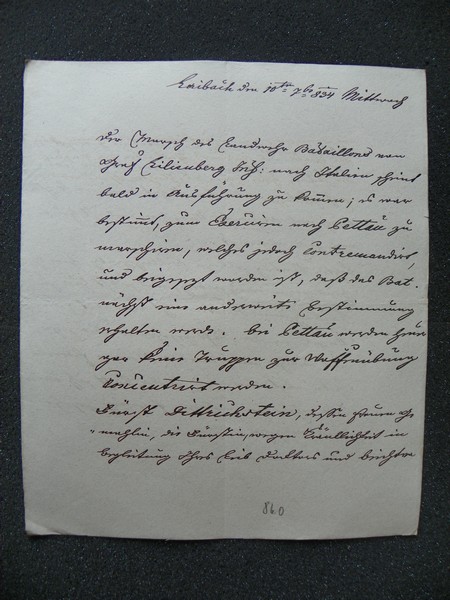 Laibach den 10ten 7br 834 Mittwoch
Der Marsch des Landwehr Bataillons von
Graf Lilienberg Inf: nach Italien scheint
bald in Ausführung zu kommen; es war
bestimmt, zum Exerciren nach Pettau zu
marschiren, welches jedoch Contremandirt,
und beigesetzt worden ist, daß das Bat.
nächst eine anderweite Bestimmung
erhalten werde. bei Pettau werden heuer
gar keine Truppen zur Waffenübung
Concentrirt werden.
Fürst Dittrichstein, dessen Frau Ge-
mahlin, die Fürstin, wegen Kränklichkeit in
begleitung Ihres Leib Doktors und
860